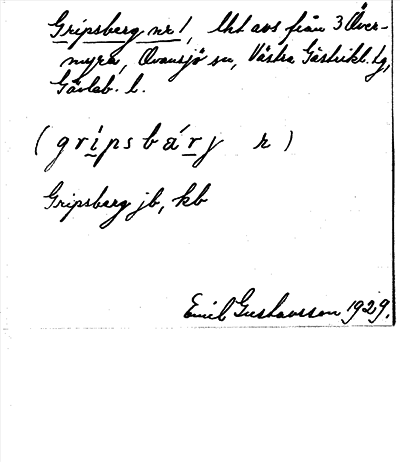 Gripsberg nr 1, lht avs från 3 Över-
myra, Ovansjö sn, Västra Gästrikl. tg,
Gävleb. l.
(gripsbárj r)
Gripsberg jb, kb
Emil Gustavsson 1929.